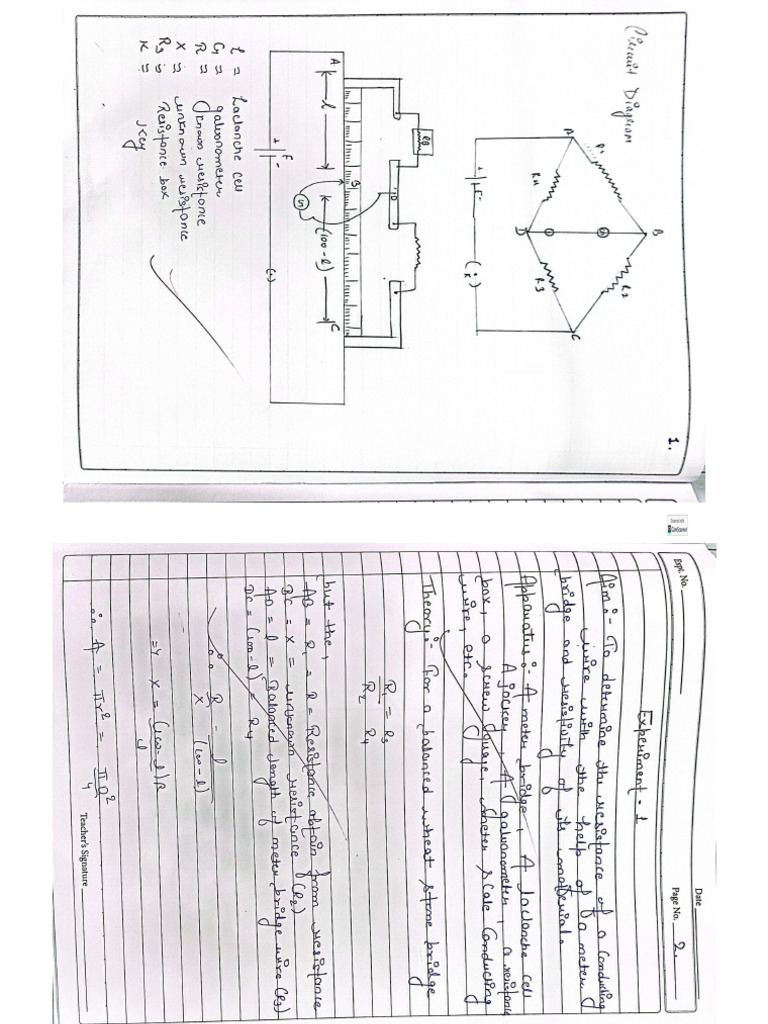 1.
Circuit Diagram
A
B
C
D
R1
R2
R3
R4
G
E
+
-
K
RB
D
A
B
C
l
(100-l)
G
E
+
-
(•)
E = Laclanche cell
G = galvanometer
R = Known resistance
X = unknown resistance
RB = Resistance box
K = Key
Scanned with
CamScanner
Expt. No.
Date
Page No. 2.
Experiment - 1
Aim:- To determine the resistance of a conducting
wire with the help of a meter
bridge and resistivity of its material.
Apparatus:- A meter bridge, A Laclanche cell
A jockey, A galvanometer, a resistance
box, a screw guage, meter scale conducting
wire, etc.
Theory:- For a balanced wheat stone bridge
R1/R2 = R3/R4
but the,
AB = R1 = R = Resistance obtain from resistance
BC = X = unknown resistance (R2)
AD = l = Balanced length of meter bridge wire (R3)
DC = (100-l) = R4
∴ R/X = l/(100-l)
=> X = (100-l)R/l
∴ A = πr² = πD²/4
Teacher's Signature